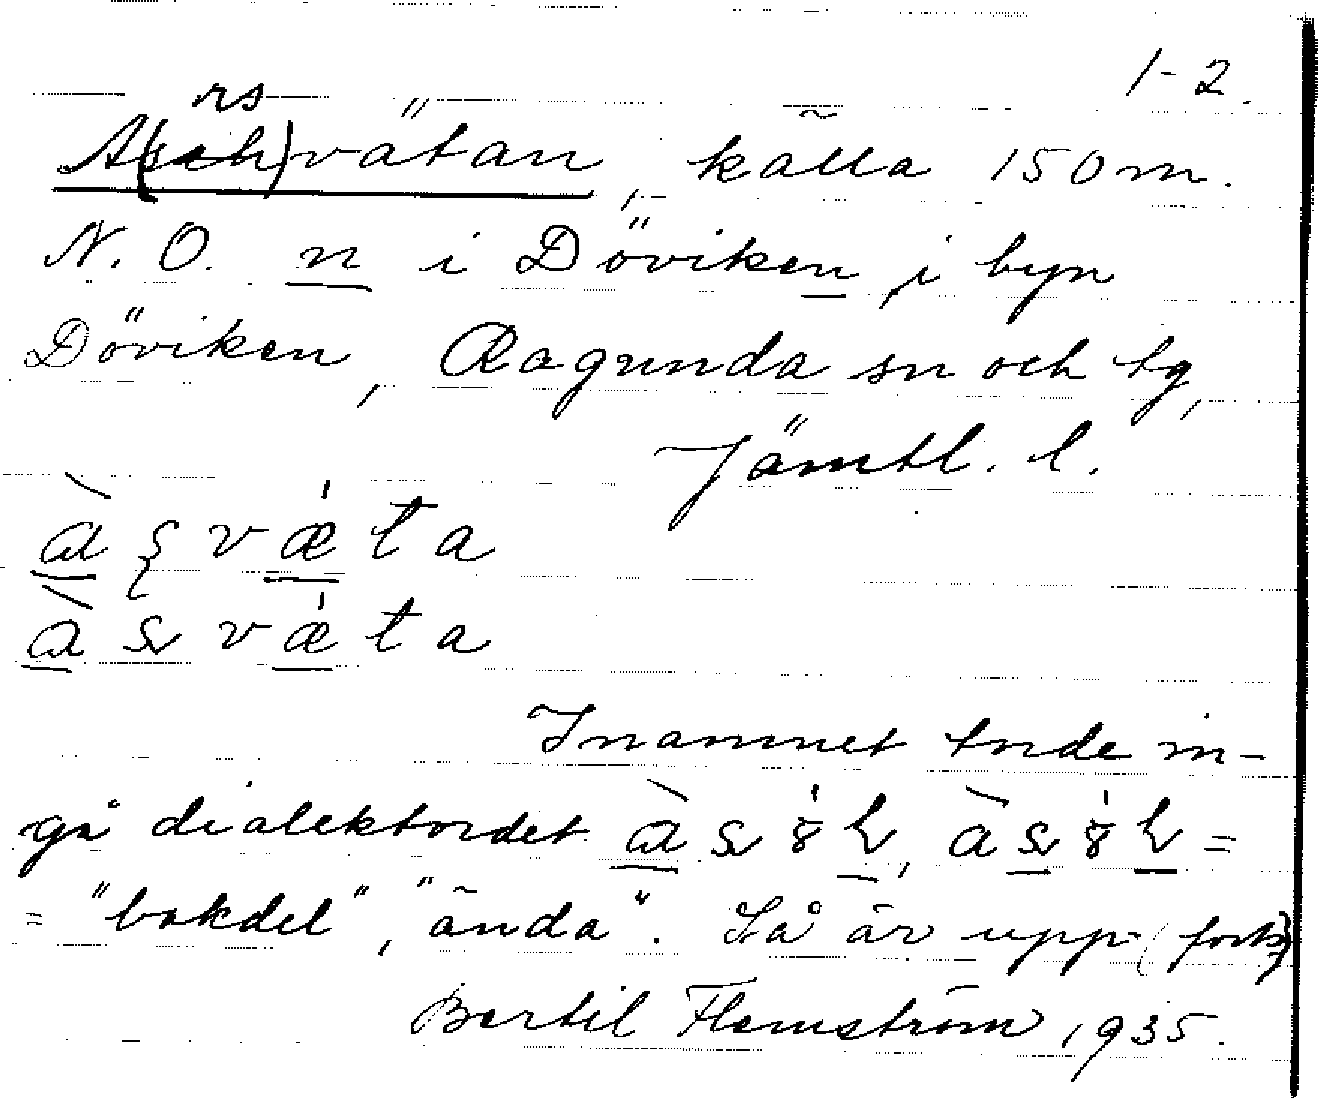 1-2.
rs
A(sch)vätan, källa 150 m.
N.O. n i Döviken, i byn
Döviken, Ragunda sn och tg,
Jämtl. l.
væta
væta
I namnet torde in-
gå dialektordet
= "bakdel", "ända". Så är upp- (forts)
Bertil Flemström 1935.